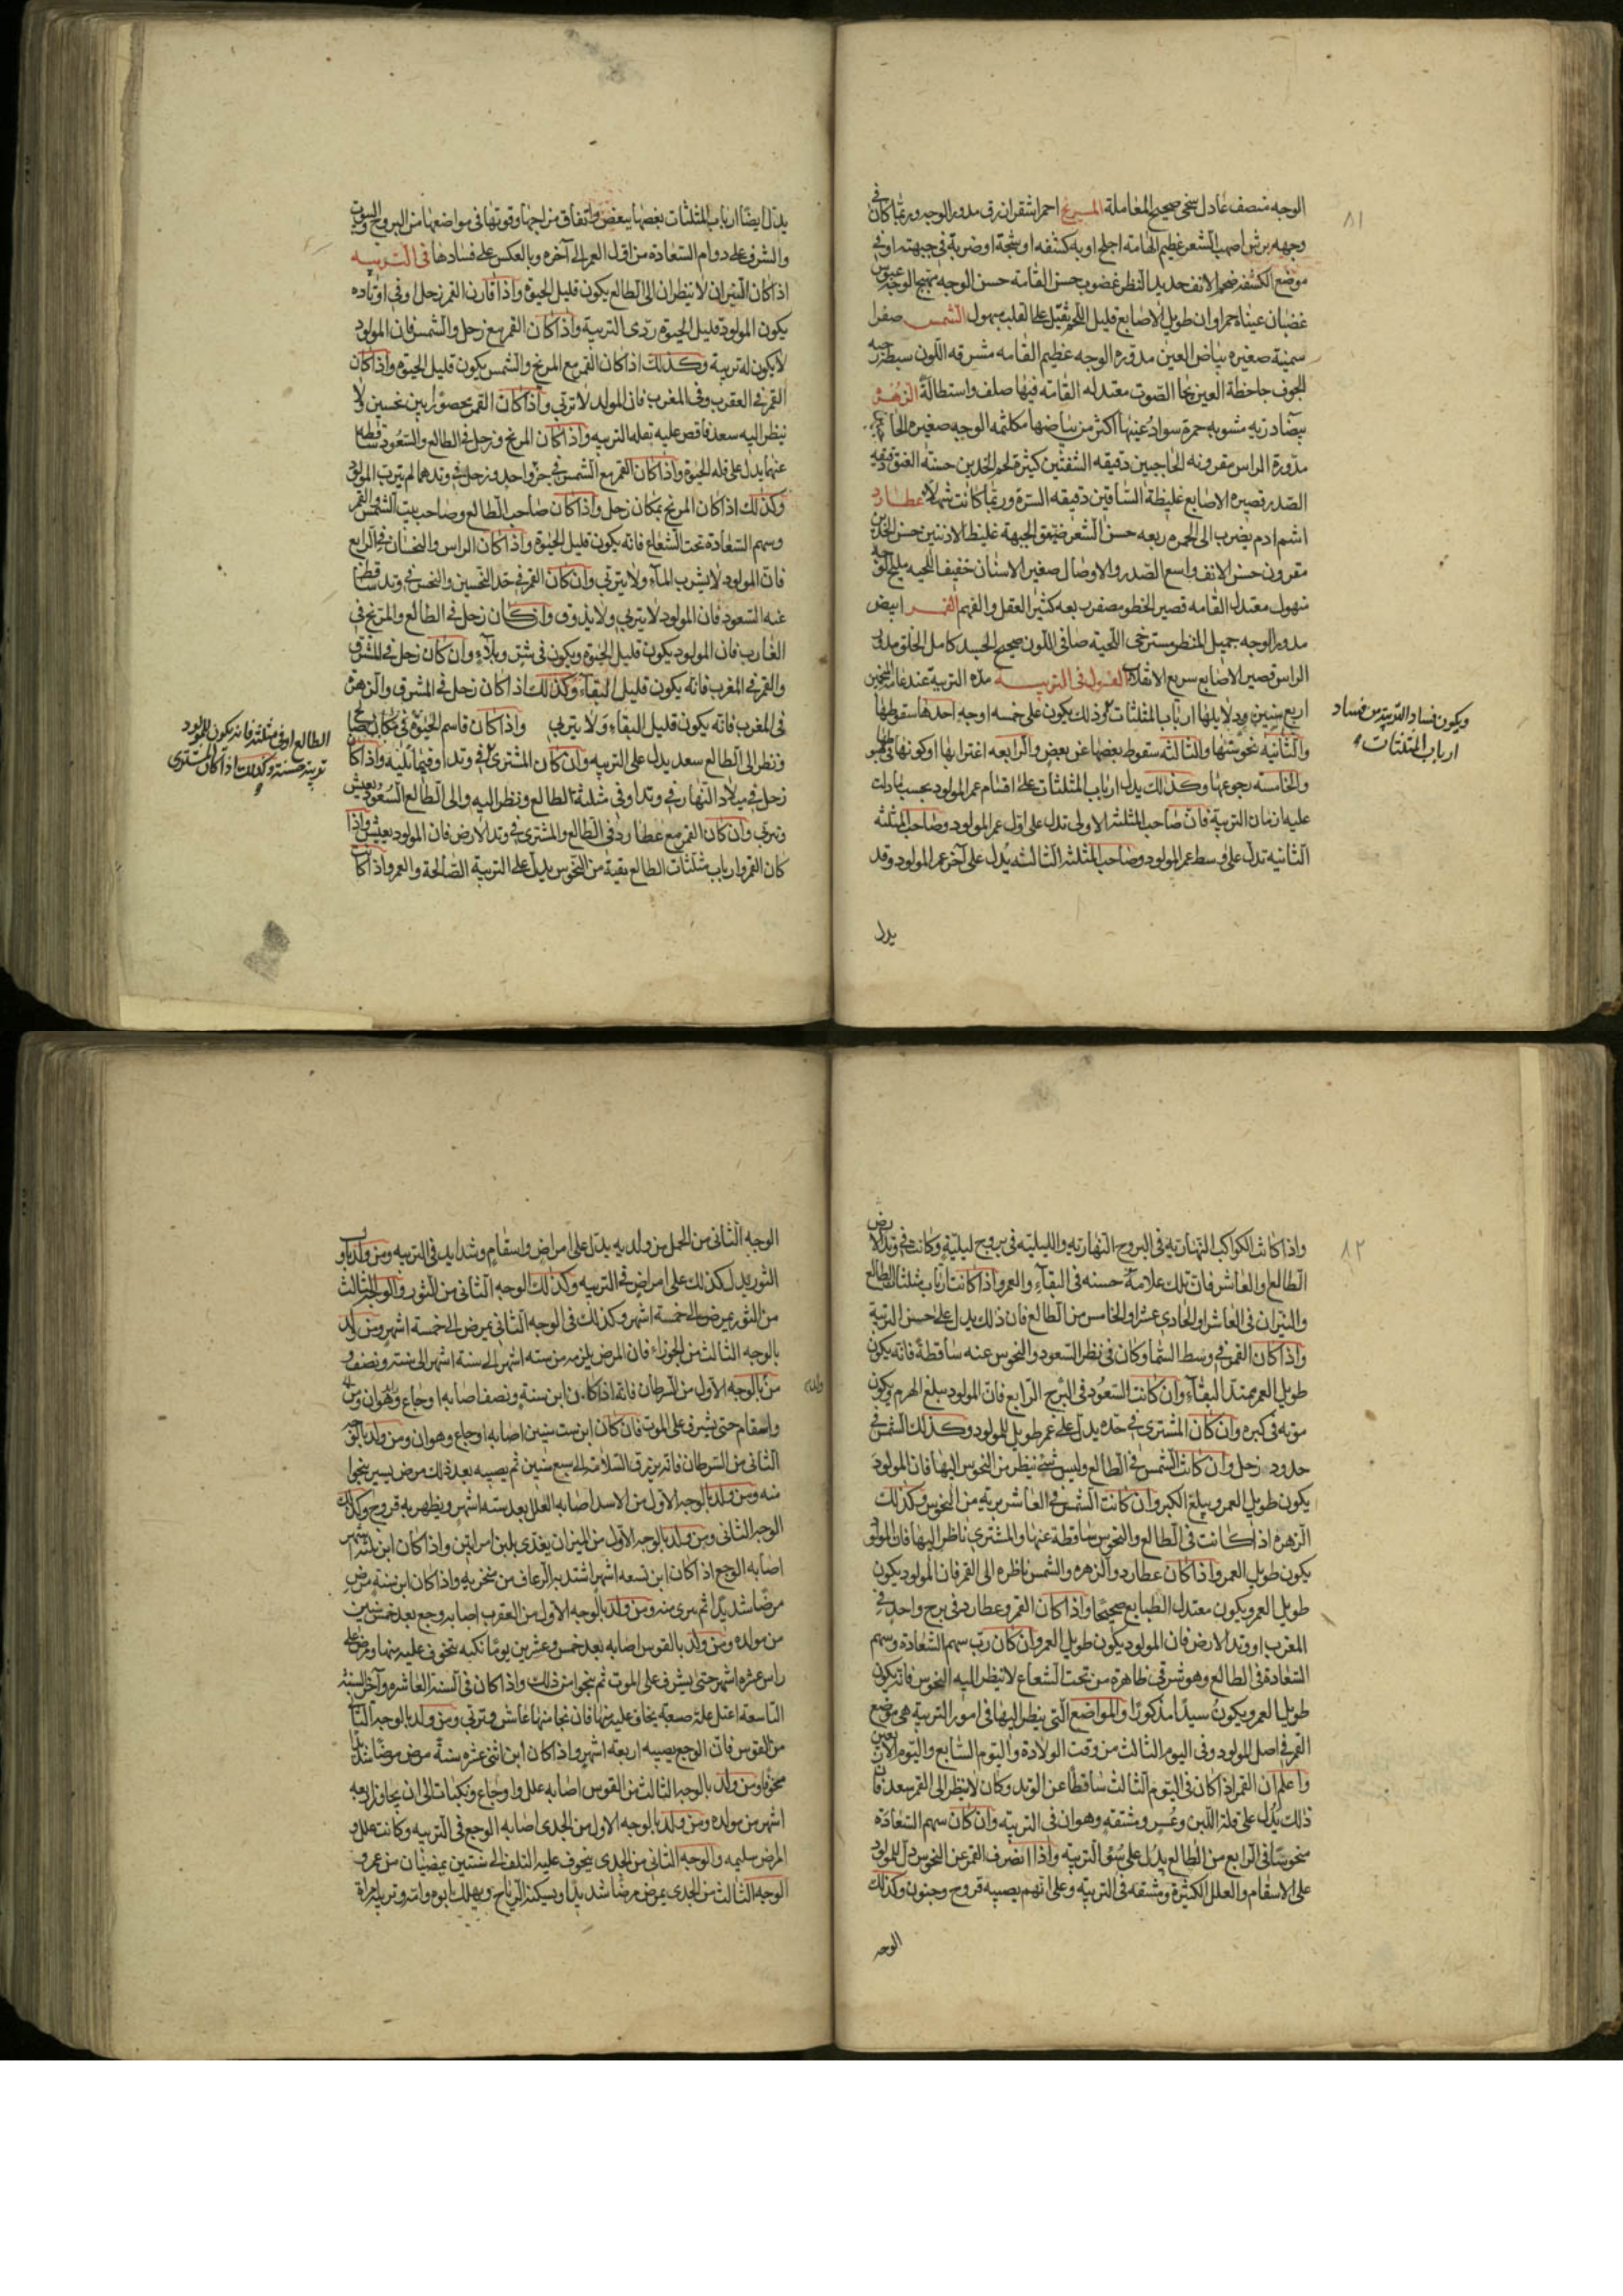 ٨١
الوجه منصف عادل سخي صحيح المعاملة المريخ احمر اشقر ازرق مدور الوجه وربما كان في
وجهه برش اصهب الشعر عظيم الهامة اجلح او به كشفه او شجة او ضربة في جبهته او في
موضع الكشفه ضخم الانف حديد النظر غضوب حسن القامة حسن الوجه متهيج الوجه عبوس
غضبان عيناه حمراوان طويل الاصابع قليل اللحم ثقيل على القلب مهول الشمس صفرا
سمينة صغيره بياض العين مدوره الوجه عظيم القامه مشرقه اللون سبطة رحبه
الجوف جاحظة العين بحا الصوت معتدله القامه فيها صلف واستطالة الزهره
بيضا دريه مشوبه حمرة سواد عينها اكثر من بياضها مكلثمه الوجه صغيره
مدورة الراس مقرونه الحاجبين دقيقه الشفتين كثيرة لحم الخدين حسنة العنق دقيقه
الصدر قصيره الاصابع غليظة الساقين دقيقه السرة وربما كانت شهلا عطارد
اسم ادم يضرب الى الحمره ربعه حسن الشعر ضيق الجبهة غليظ الاذنين حسن الخدين
مقرون حسن الانف واسع الصدر والاوصال صغير الاسنان خفيف اللحيه مليح
مهول معتدل القامه قصير الخطو مصفر ربعه كثير العقل والفهم القمر ابيض
مدور الوجه جميل المنظر مسترخي اللحية صافي اللون صحيح الجسد كامل الخلق مدور
الراس قصير الاصابع سريع الانقلاب القول في التربيه مده التربية عند عامة المنجمين
اربع سنين ودلايلها ارباب المثلثات وذلك يكون على خمسه اوجه احدها سقوطها
والثانيه نحوستها والثالثه سقوط بعضها عن بعض والرابعه اغترابها او كونها في
والخامسه رجوعها وكذلك يدل ارباب المثلثات على اقسام عمر المولود بحسب ما دلت
عليه ازمان التربية فان صاحب المثلثه الاولى تدل على اول عمر المولود وصاحب المثلثه
الثانيه تدل على وسط عمر المولود وصاحب المثلثه الثالثه يدل على آخر عمر المولود وقد
يدل
ويكون فساد التربية من فساد
ارباب المثلثات
يدل ايضا ارباب المثلثات بعضها ببعض واتفاق مزاجها وقوتها في مواضعها من البروج البيوت
والشرف على دوام السعادة من اول العمر الى آخره وبالعكس على فسادها في التربيه
اذا كان النيران لا ينظران الى الطالع يكون قليل الحيوة واذا قارن القمر زحل او في اوتاده
يكون المولود قليل الحيوة ردى التربية واذا كان القمر مع زحل والشمس فان المولود
لا يكون له تربية وكذلك اذا كان القمر مع المريخ والشمس يكون قليل الحيوة واذا كان
القمر في العقرب وفي المغرب فان المولد لا تربي واذا كان القمر محصورا بين نحسين ولا
ينظر اليه سعد فاقض عليه بقله التربيه واذا كان المريخ وزحل في الطالع والسعود ساقطه
عنهما يدل على قله الحيوة واذا كان القمر مع الشمس في جزو واحد وزحل في وتدهما لم يترب المولود
وكذلك اذا كان المريخ بمكان زحل واذا كان صاحب الطالع وصاحب بيت الشمس والقمر
وسهم السعادة تحت الشعاع فانه يكون قليل الحيوة واذا كان الراس والنحسان في الرابع
فان المولود لا يشرب الماء ولا يتربي وان كان القمر في حد النحسين والنحس في وتد ساقط
عنه السعود فان المولود لا يتربي ولا يذوق وان كان زحل في الطالع والمريخ في
الغارب فان المولود يكون قليل الحيوة ويكون في شق وبلاء وان كان زحل في المشرق
والقمر في المغرب فانه يكون قليل البقاء وكذلك اذا كان زحل في المشرق والزهرة
في المغرب فانه يكون قليل البقاء ولا يتربي واذا كان قاسم الحيوة في مكان صالح
ونظر الى الطالع سعد يدل على التربيه وان كان المشترى في وتد او فيما يليه واذا كان
زحل في ميلاد النهار في وتد او في مثلثة الطالع ونظر اليه والى الطالع السعود يعيش
وتربي وان كان القمر مع عطارد في الطالع والمشتري في وتد الارض فان المولود يعيش واذا
كان القمر وارباب مثلثات الطالع نقية من النحوس يدل على التربية الصالحة والعمر واذا كانت
الطالع او في مثلثه فانه يكون للمولود
تربية حسنة وكذلك اذا كان المشتري
٨٢
واذا كانت الكواكب النهاريه في البروج النهاريه والليليه في بروج ليلية وكانت في وتد الارض
الطالع او العاشر فان تلك علامة حسنه في البقاء والعمر واذا كانت ارباب مثلثات الطالع
والنيران في العاشر او الحادي عشر او الخامس من الطالع فان ذلك يدل على حسن التربية
واذا كان القمر في وسط السما وكان في نظر السعود والنحوس عنه ساقطة فانه يكون
طويل العمر ممتد البقاء وان كانت السعود في البرج الرابع فان المولود يبلغ الهرم ويكون
موته في كبره وان كان المشترى في حده يدل على عمر طويل للمولود وكذلك الشمس في
حدود زحل وان كانت الشمس في الطالع وليس شئ ينظر من النحوس اليها فان المولود
يكون طويل العمر ويبلغ الكبر وان كانت الشمس في العاشر برية من النحوس وكذلك
الزهره اذا كانت في الطالع والنحوس ساقطة عنها والمشتري ناظر اليها فان المولود
يكون طويل العمر واذا كان عطارد والزهره والشمس ناظره الى القمر فان المولود يكون
طويل العمر ويكون معتدل الطبايع صحيحا واذا كان القمر وعطارد في برج واحد في
المغرب او وتد الارض فان المولود يكون طويل العمر وان كان رب سهم السعادة وسهم
السعادة في الطالع وهو شرقي ظاهرة من تحت الشعاع لا ينظر اليه النحوس فانه يكون
طويل العمر ويكون سيدا مذكورا والمواضع التي ينظر اليها في امور التربية هي موضع
القمر في اصل المولود وفي اليوم الثالث من وقت الولادة واليوم السابع واليوم الاربعين
واعلم ان القمر اذا كان في اليوم الثالث ساقطا عن الوتد وكان لا ينظر الى القمر سعد فان
ذلك يدل على قلة اللبن وعسر ومشقته وهوان في التربيه وان كان سهم السعادة
منحوسا في الرابع من الطالع يدل على سؤ التربيه واذا انصرف القمر عن النحوس دل للمولود
على الاسقام والعلل الكثيرة ومشقه في التربيه وعلى انهم يصيبه قروح وجنون وكذلك
الوجه
الوجه الثاني من الحمل من ولد به يدل على امراض واسقام وشدايد في التربيه ومن ولد باول
الثور يدل كذلك على امراض في التربيه وكذلك الوجه الثاني من الثور والوجه الثالث
من الثور يمرض الى خمسة اشهر وكذلك في الوجه الثاني يمرض الى خمسة اشهر ومن ولد
بالوجه الثالث من الجوزاء فان المرض يلزمه من سته اشهر الى سنة اشهر الى سنة ونصف و
من بالوجه الاول من السرطان فانه اذا كان ابن سنة ونصف اصابه اوجاع وهوان ومرض
واسقام حتى يشرف على الموت فان كان ابن ست سنين اصابه اوجاع وهوان ومن ولد بالوجه
الثاني من السرطان فانه يرزق السلامه الى سبع سنين ثم يصيبه بعد ذلك مرض يسير ينجوا
منه ومن ولد بالوجه الاول من الاسد اصابه العلل بعد سته اشهر ويظهر به قروح وكذلك
الوجه الثاني ومن ولد بالوجه الاول من الميزان يغذى بلبن امراتين واذا كان ابن ثلثه اشهر
اصابه الوجع اذا كان ابن تسعه اشهر اشتد به الرعاف من منخريه واذا كان ابن سنة مرض
مرضا شديدا ثم يبرى منه ومن ولد بالوجه الاول من العقرب اصابه وجع بعد خمس سنين
من مولده ومن ولد بالقوس اصابه بعد خمس وعشرين يوما نكبه يتخوف عليه منها ومرض على
راس عشره اشهر حتى يشرف على الموت ثم ينجوا من ذلك واذا كان في السنة العاشره وآخر السنة
التاسعه اعتل علة صعبة يخاف عليه منها فان نجا منها عاش وتربي ومن ولد بالوجه الثاني
من القوس فان الوجع يصيبه اربعة اشهر واذا كان ابن اثني عشره سنة مرض مرضا شديدا
مخوفا ومن ولد بالوجه الثالث من القوس اصابه علل واوجاع ونكبات الى ان يجاوز اربعه
اشهر من مولده ومن ولد بالوجه الاول من الجدى اصابه الوجع في التربيه وكانت علل و
المرض سليمه والوجه الثاني من الجدى يتخوف عليه التلف الى سنتين يمضيان من عمره و
الوجه الثالث من الجدى يمرض مرضا شديدا ويسكنه الرياح ويهلك ابوه وامه وتربيه امراة
ولد